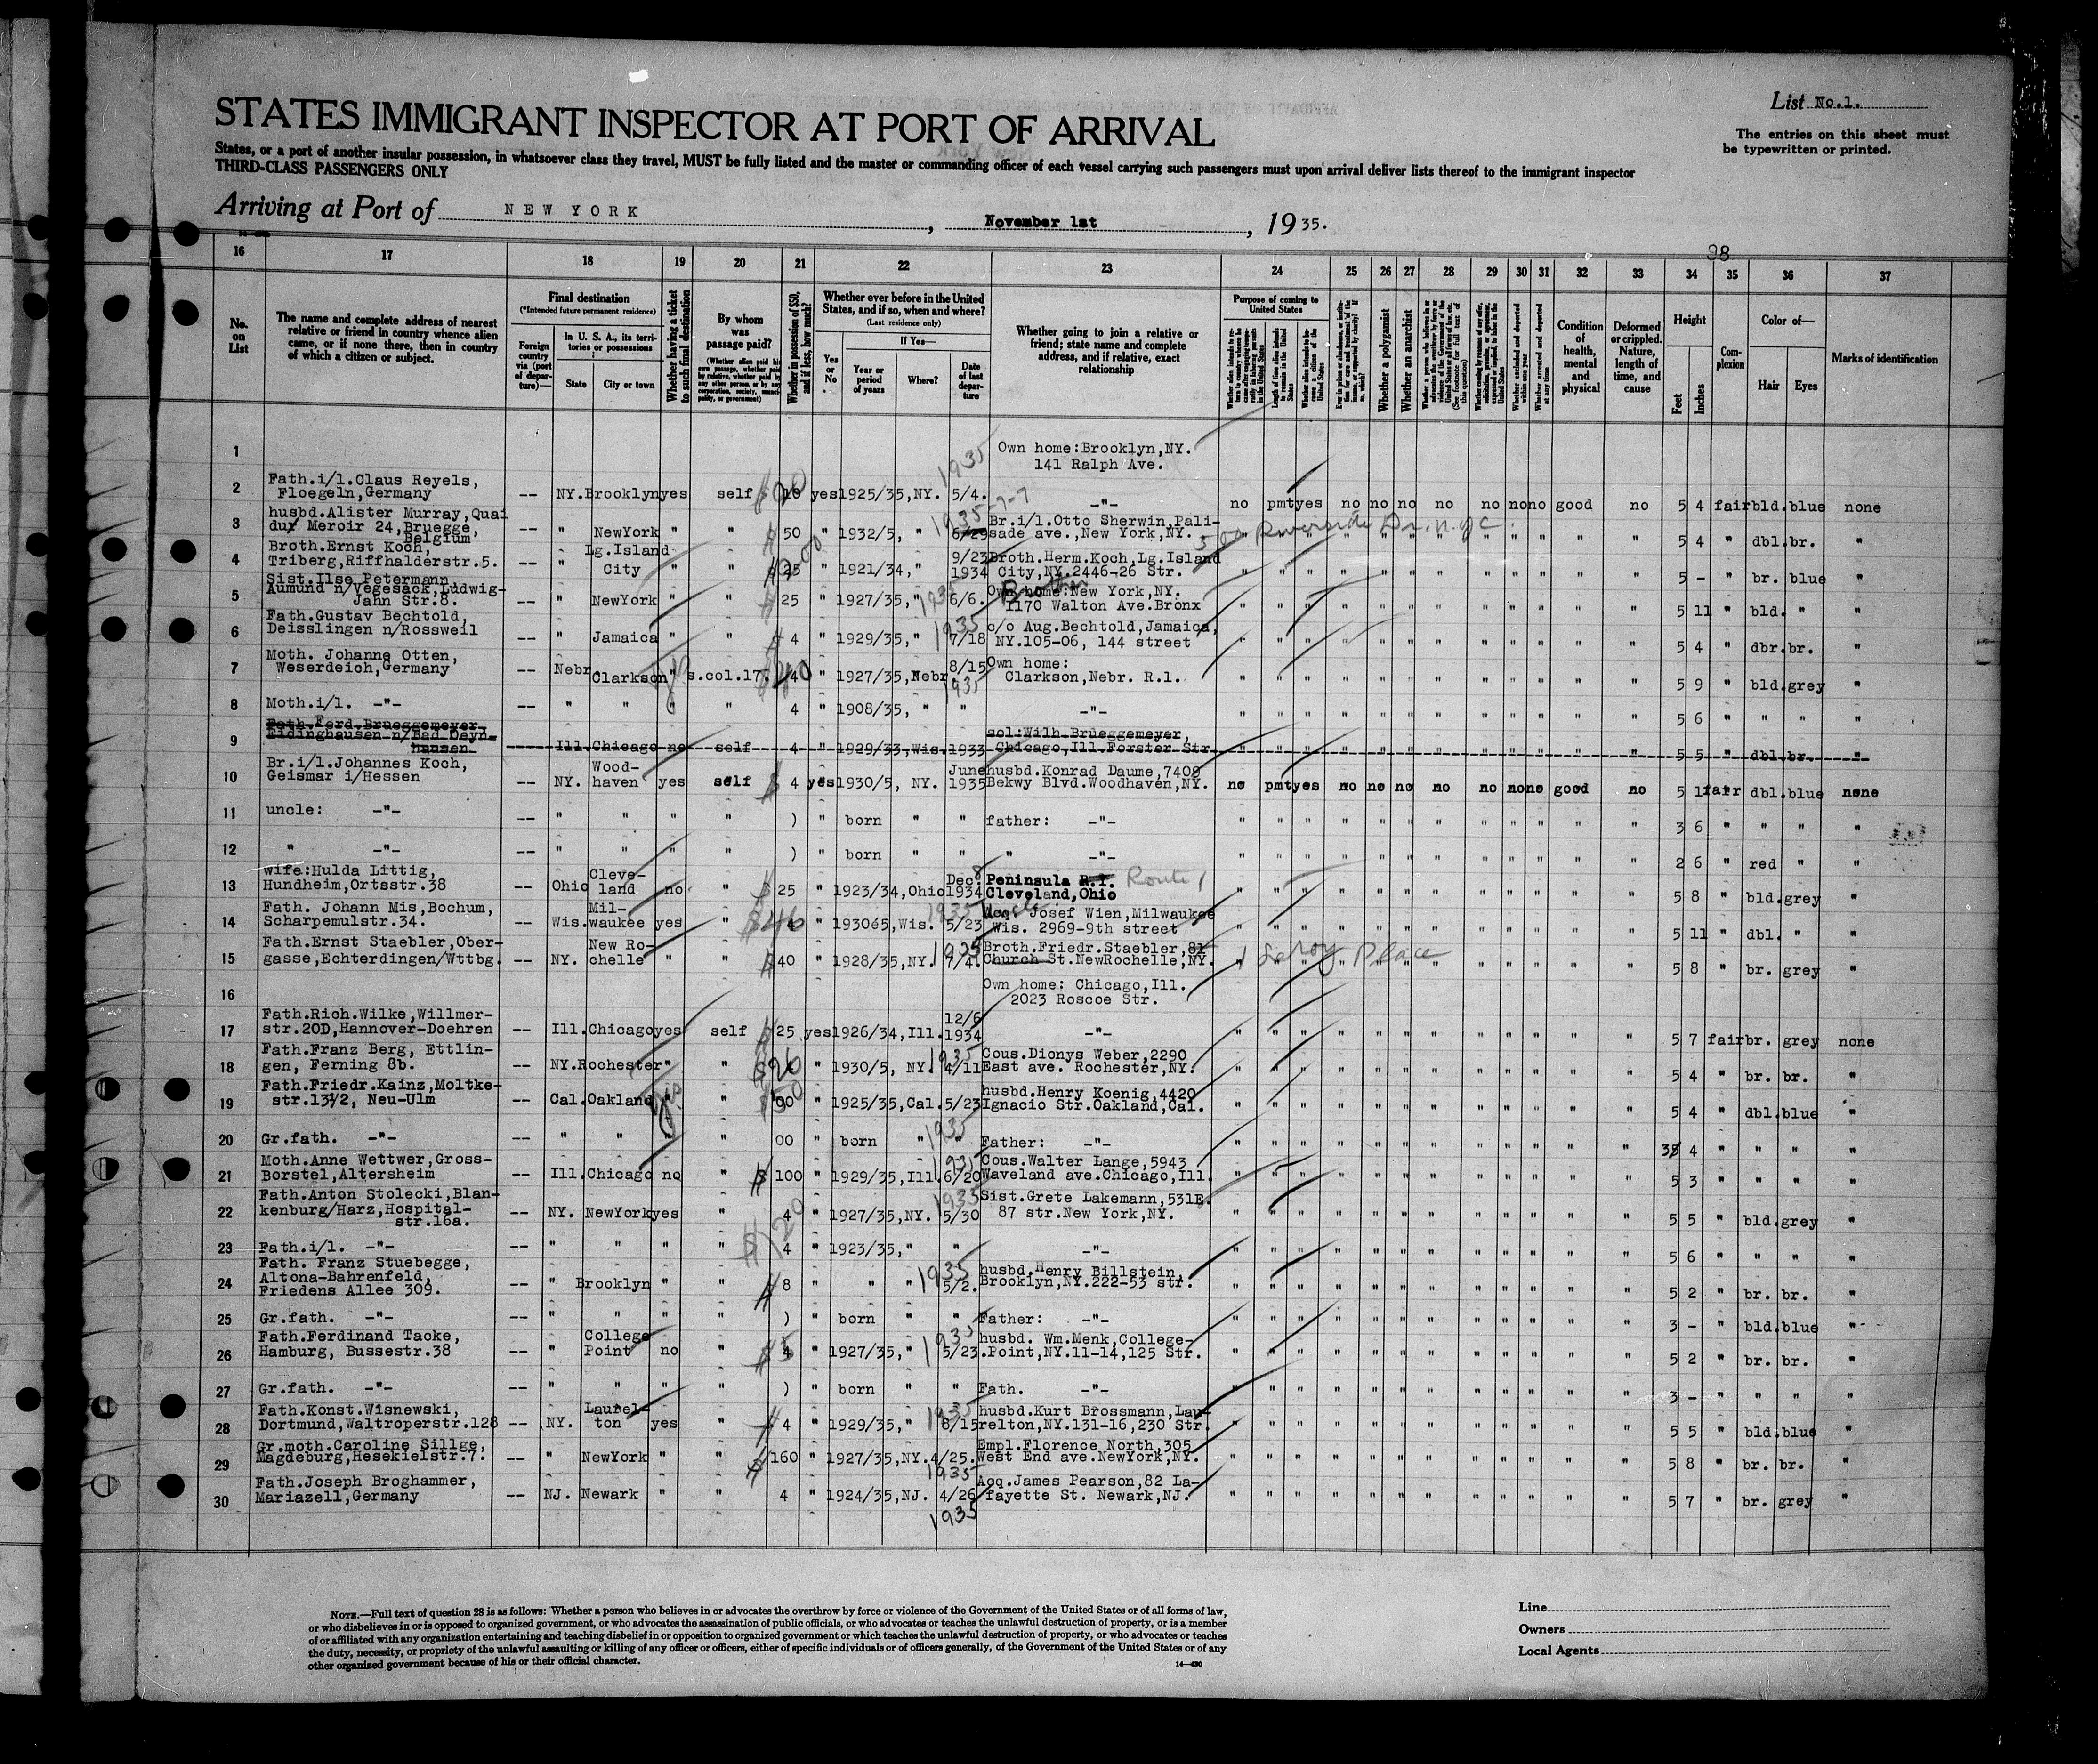 List No.1.
STATES IMMIGRANT INSPECTOR AT PORT OF ARRIVAL
The entries on this sheet must
be typewritten or printed.
States, or a port of another insular possession, in whatsoever class they travel, MUST be fully listed and the master or commanding officer of each vessel carrying such passengers must upon arrival deliver lists thereof to the immigrant inspector
THIRD-CLASS PASSENGERS ONLY
Arriving at Port of NEW YORK, November 1st, 1935.
98
16 17 18 19 20 21 22 23 24 25 26 27 28 29 30 31 32 33 34 35 36 37
No. on List
The name and complete address of nearest relative or friend in country whence alien came, or if none there, then in country of which a citizen or subject.
Final destination
(*Intended future permanent residence)
Foreign country via (port of departure)—
In U. S. A., its territories or possessions
State City or town
Whether having a ticket to such final destination
By whom was passage paid?
(Whether alien paid his own passage, whether paid by relative, whether paid by any other person, or by any corporation, society, municipality, or government)
Whether in possession of $50, and if less, how much?
Whether ever before in the United States, and if so, when and where?
(Last residence only)
Yes or No
If Yes—
Year or period of years Where? Date of last departure
Whether going to join a relative or friend; state name and complete address, and if relative, exact relationship
Purpose of coming to United States
Whether a polygamist
Whether an anarchist
Condition of health, mental and physical
Deformed or crippled. Nature, length of time, and cause
Height
Feet Inches
Complexion
Color of—
Hair Eyes
Marks of identification
1 Own home:Brooklyn,NY.
141 Ralph Ave.
2 Fath.i/l.Claus Reyels,
Floegeln,Germany -- NY. Brooklyn yes self 10 yes 1925/35,NY. 5/4. 1935 -"- no pmt yes no no no no no no no good no 5 4 fair bld. blue none
3 husbd.Alister Murray,Quai
dux Meroir 24,Bruegge,
Belgium -- " NewYork " " $ 50 " 1932/5, " 6/29 1935 Br.i/l.Otto Sherwin,Pali-
sade ave.,New York,NY. Riverside Dr. n.y.c. 5 4 " dbl. br. "
4 Broth.Ernst Koch,
Triberg,Riffhalderstr.5. -- " Lg.Island
City " " 25 " 1921/34," 9/23
1934 Broth.Herm.Koch,Lg.Island
City,NY.2446-26 Str. 5 - " br. blue "
5 Sist.Ilse Petermann,
Aumund n/Vegesack,Ludwig-
Jahn Str.8. -- " NewYork " " $ 25 " 1927/35," 6/6. 1935 Own home:New York,NY.
1170 Walton Ave.Bronx Brother 5 11 " bld. " "
6 Fath.Gustav Bechtold,
Deisslingen n/Rossweil -- " Jamaica " " $ 4 " 1929/35," 7/18 1935 c/o Aug.Bechtold,Jamaica,
NY.105-06, 144 street 5 4 " dbr. br. "
7 Moth. Johanne Otten,
Weserdeich,Germany -- Nebr. Clarkson " s.col.17. 4 " 1927/35,Nebr. 8/15 1935 Own home:
Clarkson,Nebr. R.1. 5 9 " bld. grey "
8 Moth.i/l. -"- -- " " " " 4 " 1908/35, " " -"- 5 6 " " " "
9 Fath.Ferd.Brueggemeyer,
Eidinghausen n/Bad Oeyn-
hausen Ill. Chicago no self 4 " 1929/33,Wis. 1933 sol:Wilh.Brueggemeyer,
Chicago,Ill.Forster Str. 5 5 " dbl. br. "
10 Br.i/l.Johannes Koch,
Geismar i/Hessen -- NY. Wood-
haven yes self $ 4 yes 1930/5, NY. June
1935 husbd.Konrad Daume,7409
Bekwy Blvd.Woodhaven,NY. no pmt yes no no no no no no no good no 5 1 fair dbl. blue none
11 uncle: -"- -- " " " " ) " born " " father: -"- 3 6 " " " "
12 " -"- -- " " " " ) " born " " " -"- 2 6 " red " "
13 wife:Hulda Littig,
Hundheim,Ortsstr.38 -- Ohio Cleve-
land no " $ 25 " 1923/34,Ohio Dec. 8
1934 Peninsula R.I. Route 1
Cleveland,Ohio 5 8 " bld. grey "
14 Fath. Johann Mis,Bochum,
Scharpemulstr.34. -- Wis. Mil-
waukee yes " $46 " 193065,Wis. 5/23 1935 Uncle Josef Wien,Milwaukee
Wis. 2969-9th street 5 11 " dbl. " "
15 Fath.Ernst Staebler,Ober-
gasse,Echterdingen/Wttbg. -- NY. New Ro-
chelle " " $ 40 " 1928/35,NY. 7/4. 1935 Broth.Friedr.Staebler,81
Church St.NewRochelle,NY. 1 Leroy Place 5 8 " br. grey "
16 Own home: Chicago,Ill.
2023 Roscoe Str.
17 Fath.Rich.Wilke,Willmer-
str.20D,Hannover-Doehren -- Ill. Chicago yes self $ 25 yes 1926/34,Ill. 12/6
1934 -"- 5 7 fair br. grey none
18 Fath.Franz Berg, Ettlin-
gen, Ferning 8b. -- NY. Rochester " " " 1930/5, NY. 4/11 1935 Cous.Dionys Weber,2290
East ave. Rochester,NY. 5 4 " br. br. "
19 Fath.Friedr.Kainz,Moltke-
str.13½, Neu-Ulm -- Cal. Oakland " 00 " 1925/35,Cal. 5/23 1935 husbd.Henry Koenig,4420
Ignacio Str.Oakland,Cal. 5 4 " dbl. blue "
20 Gr.fath. -"- -- " " " " 00 " born " " Father: -"- 3 4 " " " "
21 Moth.Anne Wettwer,Gross-
Borstel,Altersheim -- Ill. Chicago no " $ 100 " 1929/35,Ill. 6/20 1935 Cous.Walter Lange,5943
Waveland ave.Chicago,Ill. 5 3 " " " "
22 Fath.Anton Stolecki,Blan-
kenburg/Harz,Hospital-
str.16a. -- NY. NewYork yes " 4 " 1927/35,NY. 5/30 1935 Sist.Grete Lakemann,531E.
87 str.New York,NY. 5 5 " bld. grey "
23 Fath.i/l. -"- -- " " " " 4 " 1923/35," " -"- 5 6 " " " "
24 Fath. Franz Stuebegge,
Altona-Bahrenfeld,
Friedens Allee 309. -- " Brooklyn " " $ 8 " " " 5/2. 1935 husbd.Henry Billstein,
Brooklyn,NY.222-53 str. 5 2 " br. br. "
25 Gr.fath. -"- -- " " " " ) " born " " Father: -"- 3 - " bld. blue "
26 Fath.Ferdinand Tacke,
Hamburg, Bussestr.38 -- " College
Point no " $ 5 " 1927/35," 5/23. 1935 husbd. Wm.Menk,College-
Point,NY.11-14,125 Str. 5 2 " br. br. "
27 Gr.fath. -"- -- " " " " ) " born " " Fath. -"- 3 - " " " "
28 Fath.Konst.Wisnewski,
Dortmund,Waltroperstr.128 -- NY. Laurel-
ton yes " 4 " 1929/35," 8/15 1935 husbd.Kurt Brossmann,Lau-
relton,NY.131-16,230 Str. 5 5 " bld. blue "
29 Gr.moth.Caroline Sillge,
Magdeburg,Hesekielstr.7. -- " NewYork " " $ 160 " 1927/35,NY. 4/25. 1935 Empl.Florence North,305
West End ave.NewYork,NY. 5 8 " br. br. "
30 Fath.Joseph Broghammer,
Mariazell,Germany -- NJ. Newark " " 4 " 1924/35,NJ. 4/26 1935 Acq.James Pearson,82 La-
fayette St. Newark,NJ. 5 7 " br. grey "
NOTE.—Full text of question 28 is as follows: Whether a person who believes in or advocates the overthrow by force or violence of the Government of the United States or of all forms of law,
or who disbelieves in or is opposed to organized government, or who advocates the assassination of public officials, or who advocates or teaches the unlawful destruction of property, or is a member
of or affiliated with any organization entertaining and teaching disbelief in or opposition to organized government or which teaches the unlawful destruction of property, or who advocates or teaches
the duty, necessity, or propriety of the unlawful assaulting or killing of any officer or officers, either of specific individuals or of officers generally, of the Government of the United States or of any
other organized government because of his or their official character.
14—430
Line
Owners
Local Agents